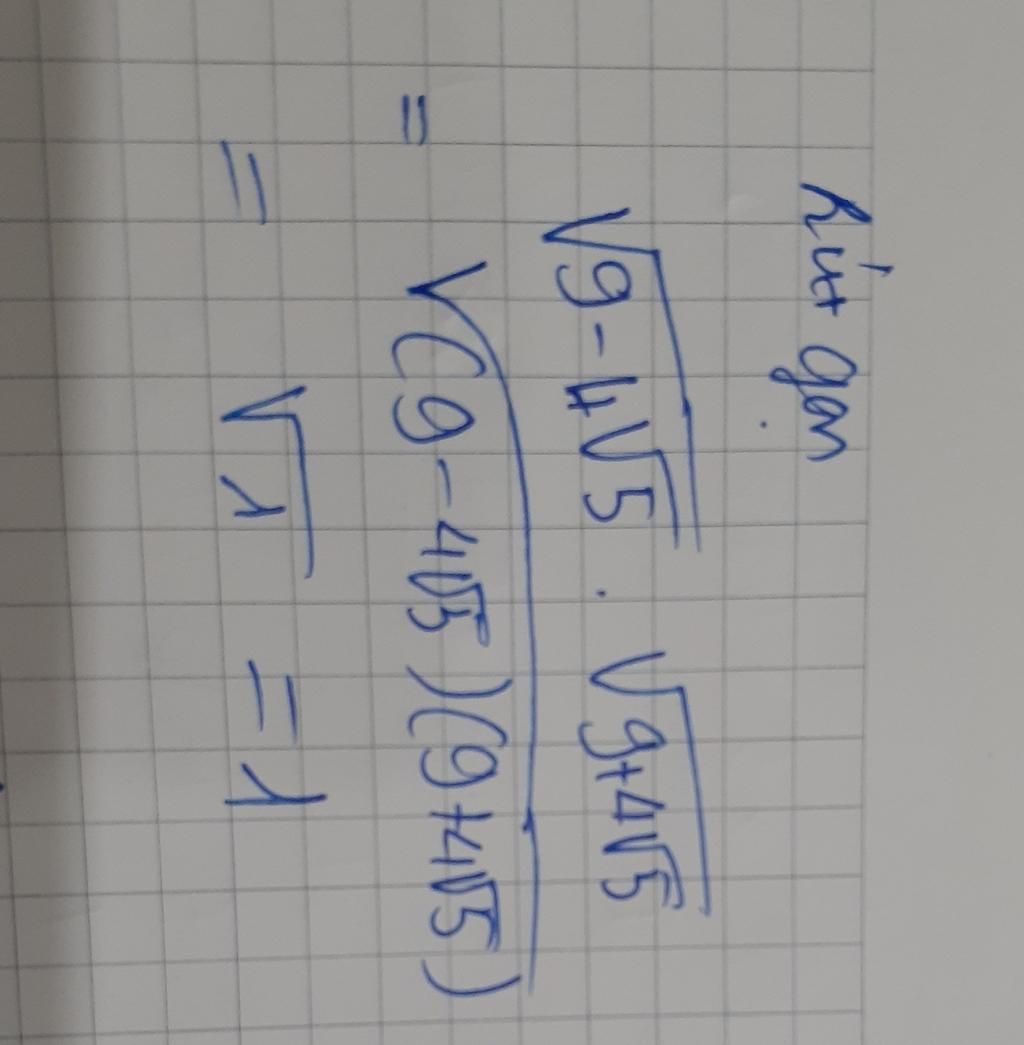 Rút gọn
√(9-4√5) . √(9+4√5)
= √((9-4√5)(9+4√5))
= √1 = 1